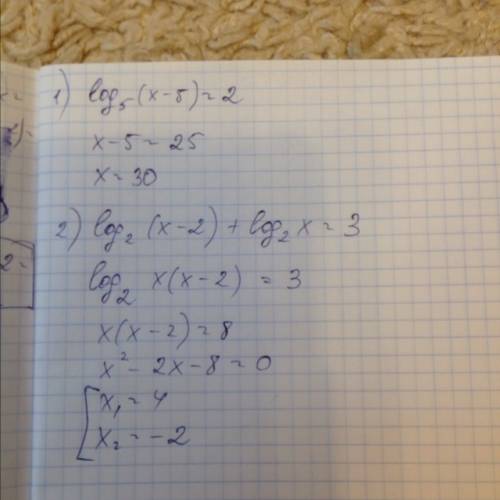 1) log₅(x-5)=2
x-5=25
x=30
2) log₂(x-2)+log₂x=3
log₂ x(x-2) = 3
x(x-2)=8
x²-2x-8=0
[x₁=4
x₂=-2